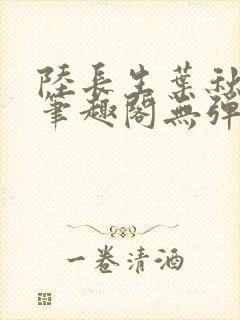 陸長生葉秋
筆趣閣無彈
一卷清酒